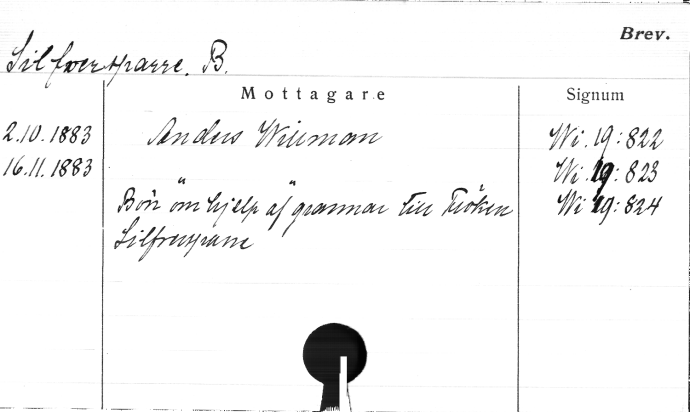 Brev.
Silfversparre, B.
Mottagare Signum
2.10.1883 Anders Willman Wi. 19:822
16.11.1883 Wi. 19:823
Bön om hjelp af grannar till Fröken Wi 19:824
Silfversparre